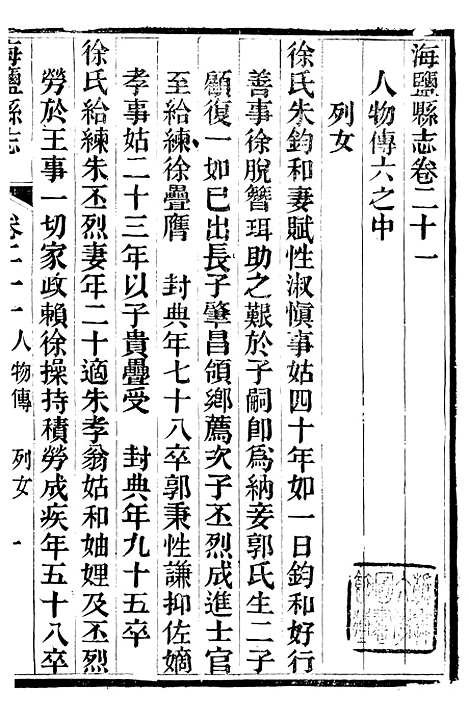 海鹽縣志卷二十一
人物傳六之中
列女
徐氏朱鈞和妻賦性淑慎事姑四十年如一日鈞和好行
善事徐脫簪珥助之艱於子嗣卽爲納妾郭氏生二子
顧復一如已出長子肇昌領鄉薦次子丕烈成進士官
至給練徐疊膺 封典年七十八卒郭秉性謙抑佐嫡
孝事姑二十三年以子貴疊受 封典年九十五卒
徐氏給練朱丕烈妻年二十適朱孝翁姑和妯娌及丕烈
勞於王事一切家政賴徐操持積勞成疾年五十八卒
海鹽縣志 卷二十一人物傳 列女 一